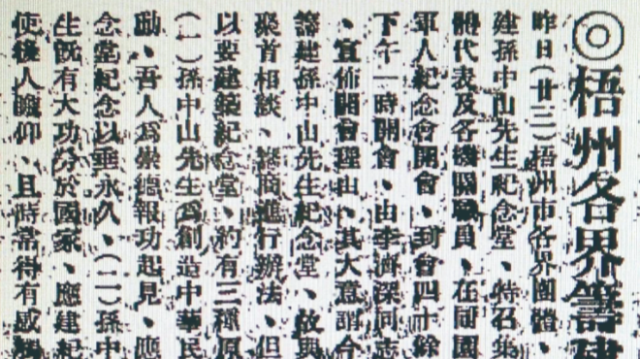 ◎梧州各界籌建
昨日(廿三)梧州市各界團體、
建孫中山先生紀念堂、特召集
代表及各機關職員、在
軍人紀念會開會、到會四十餘
下午一時開會、由李濟深同志
、宣佈開會理由、其大意謂今
籌建孫中山先生紀念堂、故與
聚首相談、商進行辦法、但
以要建築紀念堂、約有三種原
(一)孫中山先生為創造中華民
勳、吾人為崇德報功起見、應
念堂紀念以垂永久、(二)孫中
生既有大功於國家、應建紀
使後人瞻仰、且時常得有感